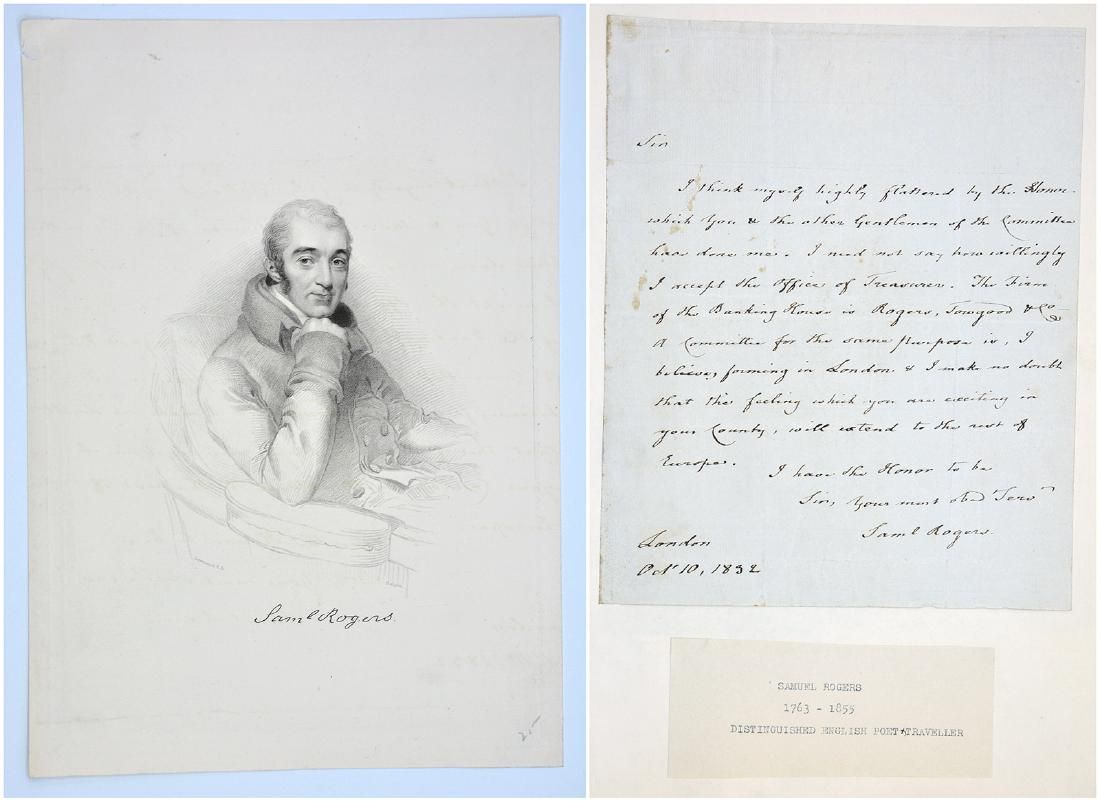 Saml Rogers.
25
Sir
I think myself highly flattered by the Honor
which You & the other Gentlemen of the Committee
have done me. I need not say how willingly
I accept the Office of Treasurer. The Firm
of the Banking House is Rogers, Towgood & Co
A Committee for the same purpose is, I
believe, forming in London & I make no doubt
that the feeling which you are exciting in
your County, will extend to the rest of
Europe.
I have the Honor to be
Sir, Your most obedt Servt
Saml Rogers.
London
Oct 10, 1832
SAMUEL ROGERS
1763 - 1855
DISTINGUISHED ENGLISH POET TRAVELLER